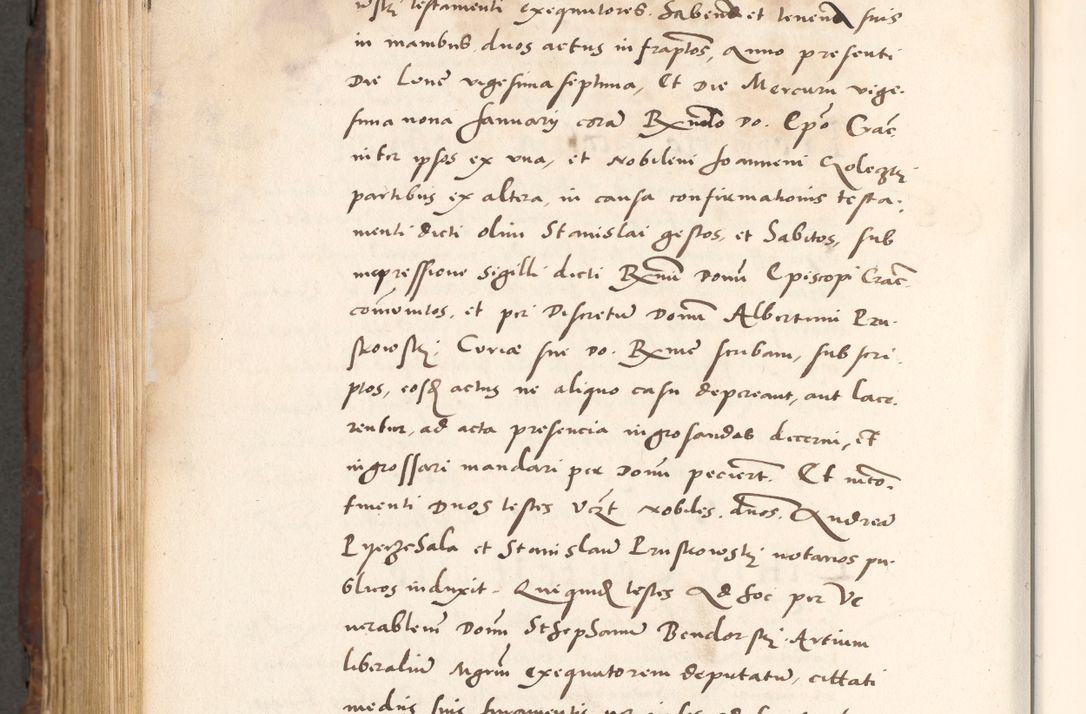 testamenti exequutores. Habend et tenend suis
in manibus duos actus infraptos, Anno presenti
Die Lune vigesima septima, Et Die Mercurii vige-
sima nona Januarij cora Rxndo Do. Epo Crac
inter ipsos ex una, et Nobilem Joannem
partibus ex altera, in causa confirmationis testa-
menti dicti olim Stanislai gestos, et habitos, sub
inpressione sigilli dicti Rxmi Domi Episcopi Crac
comunitos, et per Discretu Domi Albertum Pru-
skowski Curiæ sue Do. Rxme scribam, sub scri-
ptos, eosd actus ne aliquo casu depereant, aut lace-
rentur, ad acta presencia ingrosandos decerni, et
ingrossari mandari per Domi peciert. Et incon-
tinenti Duos testes Uczt Nobiles duos. Andrea
Pyerzchala et Stanislau Pruskowski notarios pu-
blicos induxit. Qui quid testes Ad hoc per Ve
nerablem Domi Stephanu Bendorski Artium
liberaliu Mgrm Exequutorem deputatu, cittati
medijs suis Juramentis